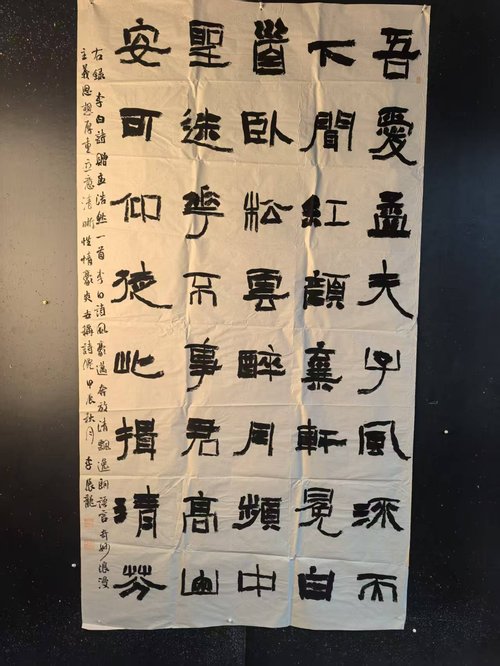 吾愛孟夫子風流天
下聞紅顏棄軒冕白
首臥松雲醉月頻中
聖迷花不事君高山
安可仰徒此揖清芬
右錄李白詩贈孟浩然一首李白詩風豪邁奔放清飄逸朗語言奇妙浪漫
主義思想厚重立意清晰性情豪爽古稱詩仙甲辰秋月李龍